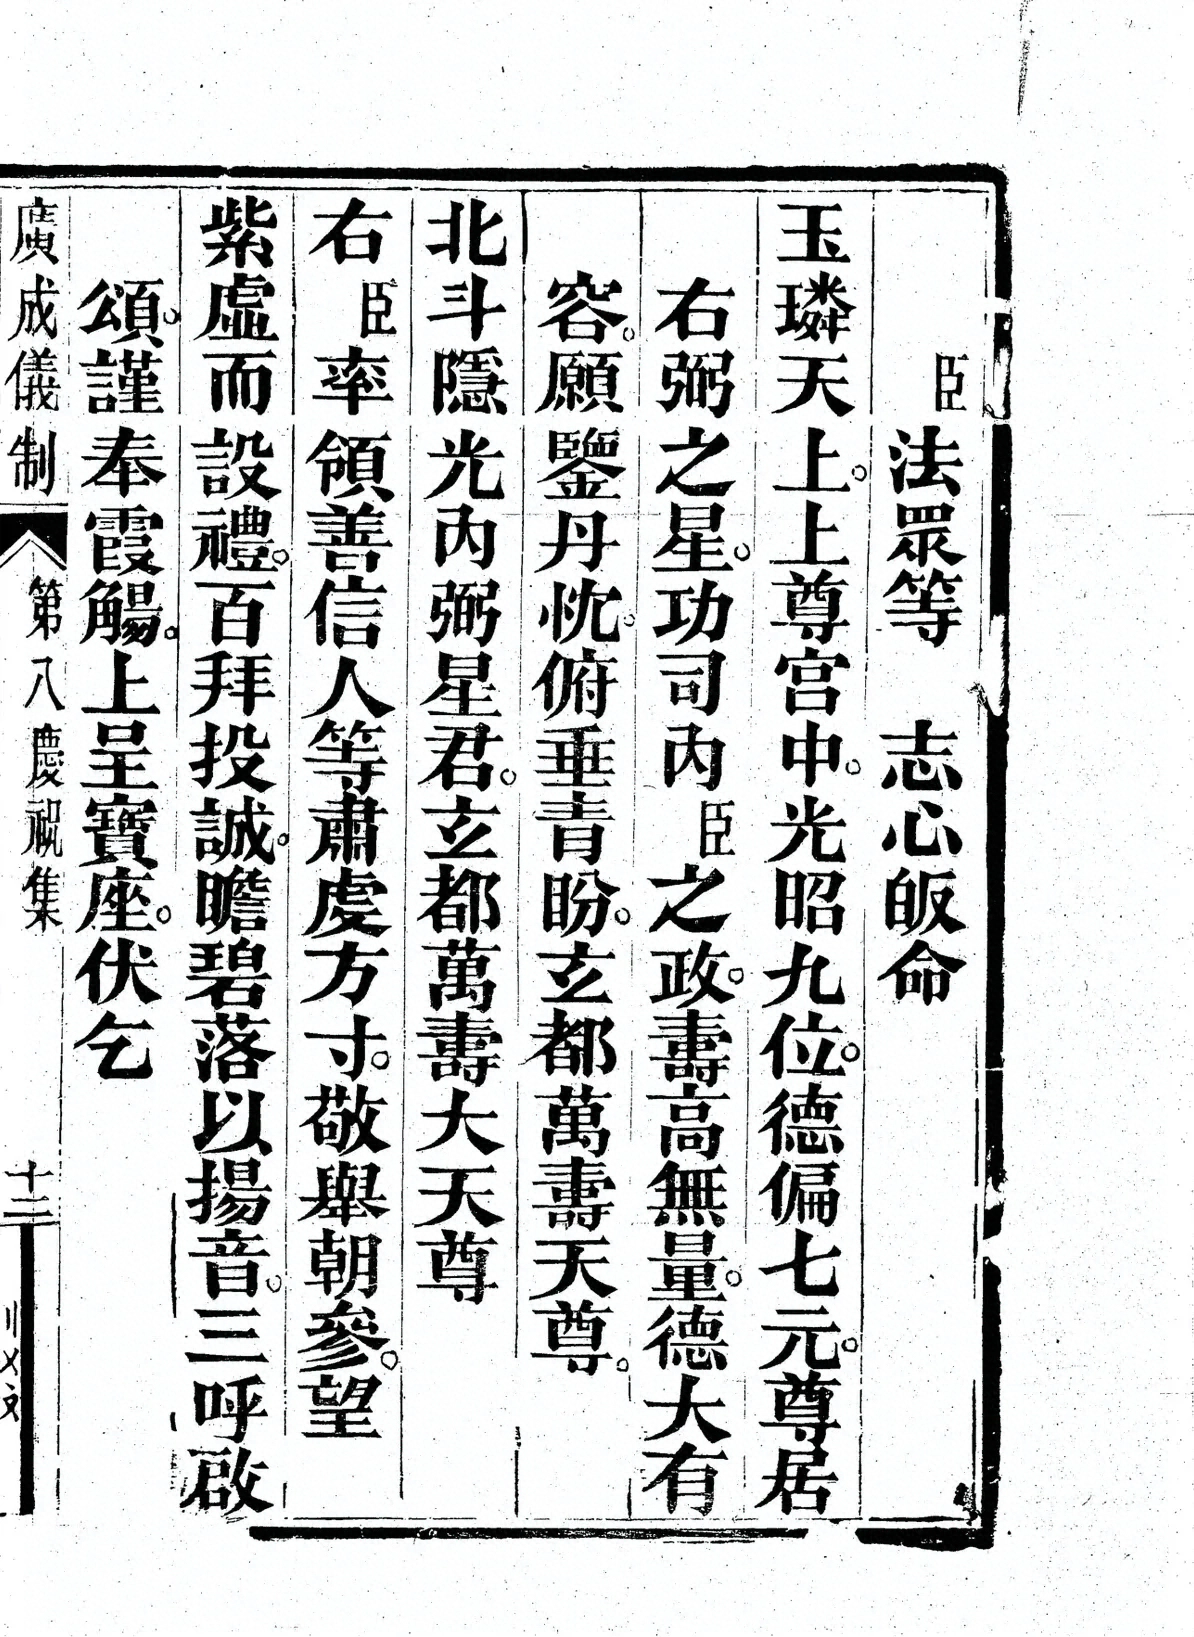 臣法眾等　志心皈命
玉璘天上。上尊宮中。光昭九位。德偏七元。尊居
右弼之星。功司內臣之政。壽高無量。德大有
容。願鑒丹忱。俯垂青盼。玄都萬壽天尊。
北斗隱光內弼星君。玄都萬壽大天尊
右臣率領善信人等肅虔方寸。敬舉朝參。望
紫虛而設禮。百拜投誠。瞻碧落以揚音。三呼啟
頌。謹奉霞觴。上呈寶座。伏乞
廣成儀制　第八慶祝集　十二